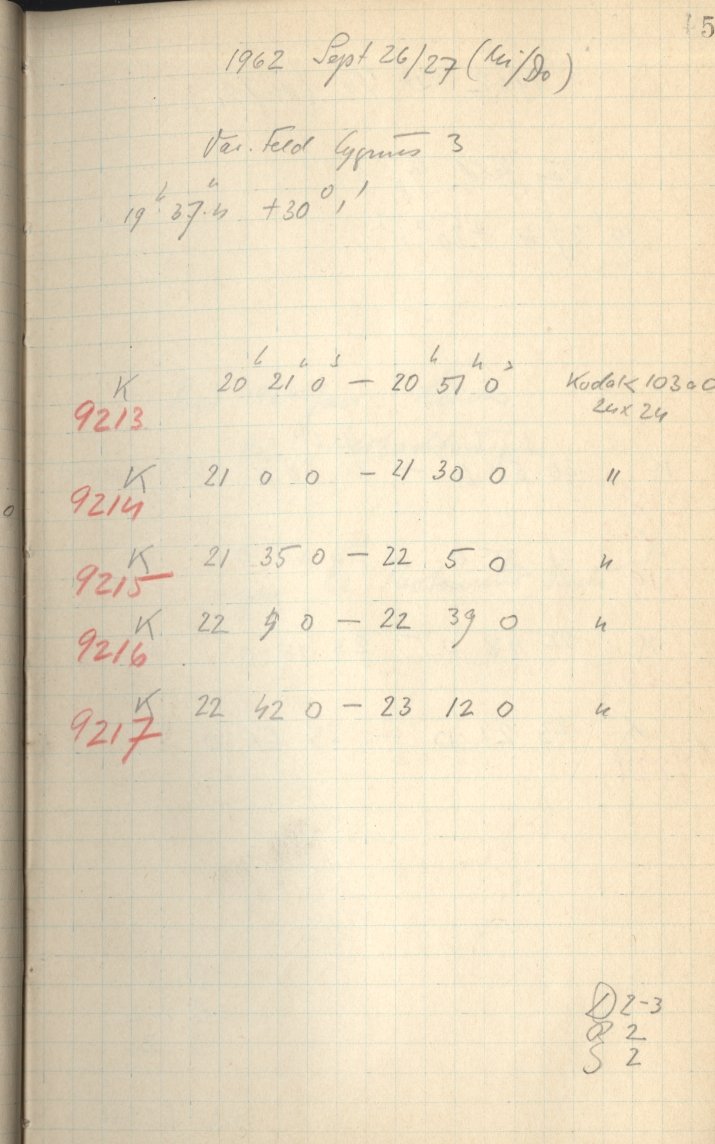 5
1962 Sept 26/27 (Mi/Do)
Var. Feld Cygnus 3
19h 37m.4 +30° 1'
K 20h 21m 0s — 20h 51m 0s Kodak 103aO
9213 24x24
K 21 0 0 — 21 30 0 "
9214
K 21 35 0 — 22 5 0 "
9215
K 22 9 0 — 22 39 0 "
9216
K 22 42 0 — 23 12 0 "
9217
D 2-3
R 2
S 2